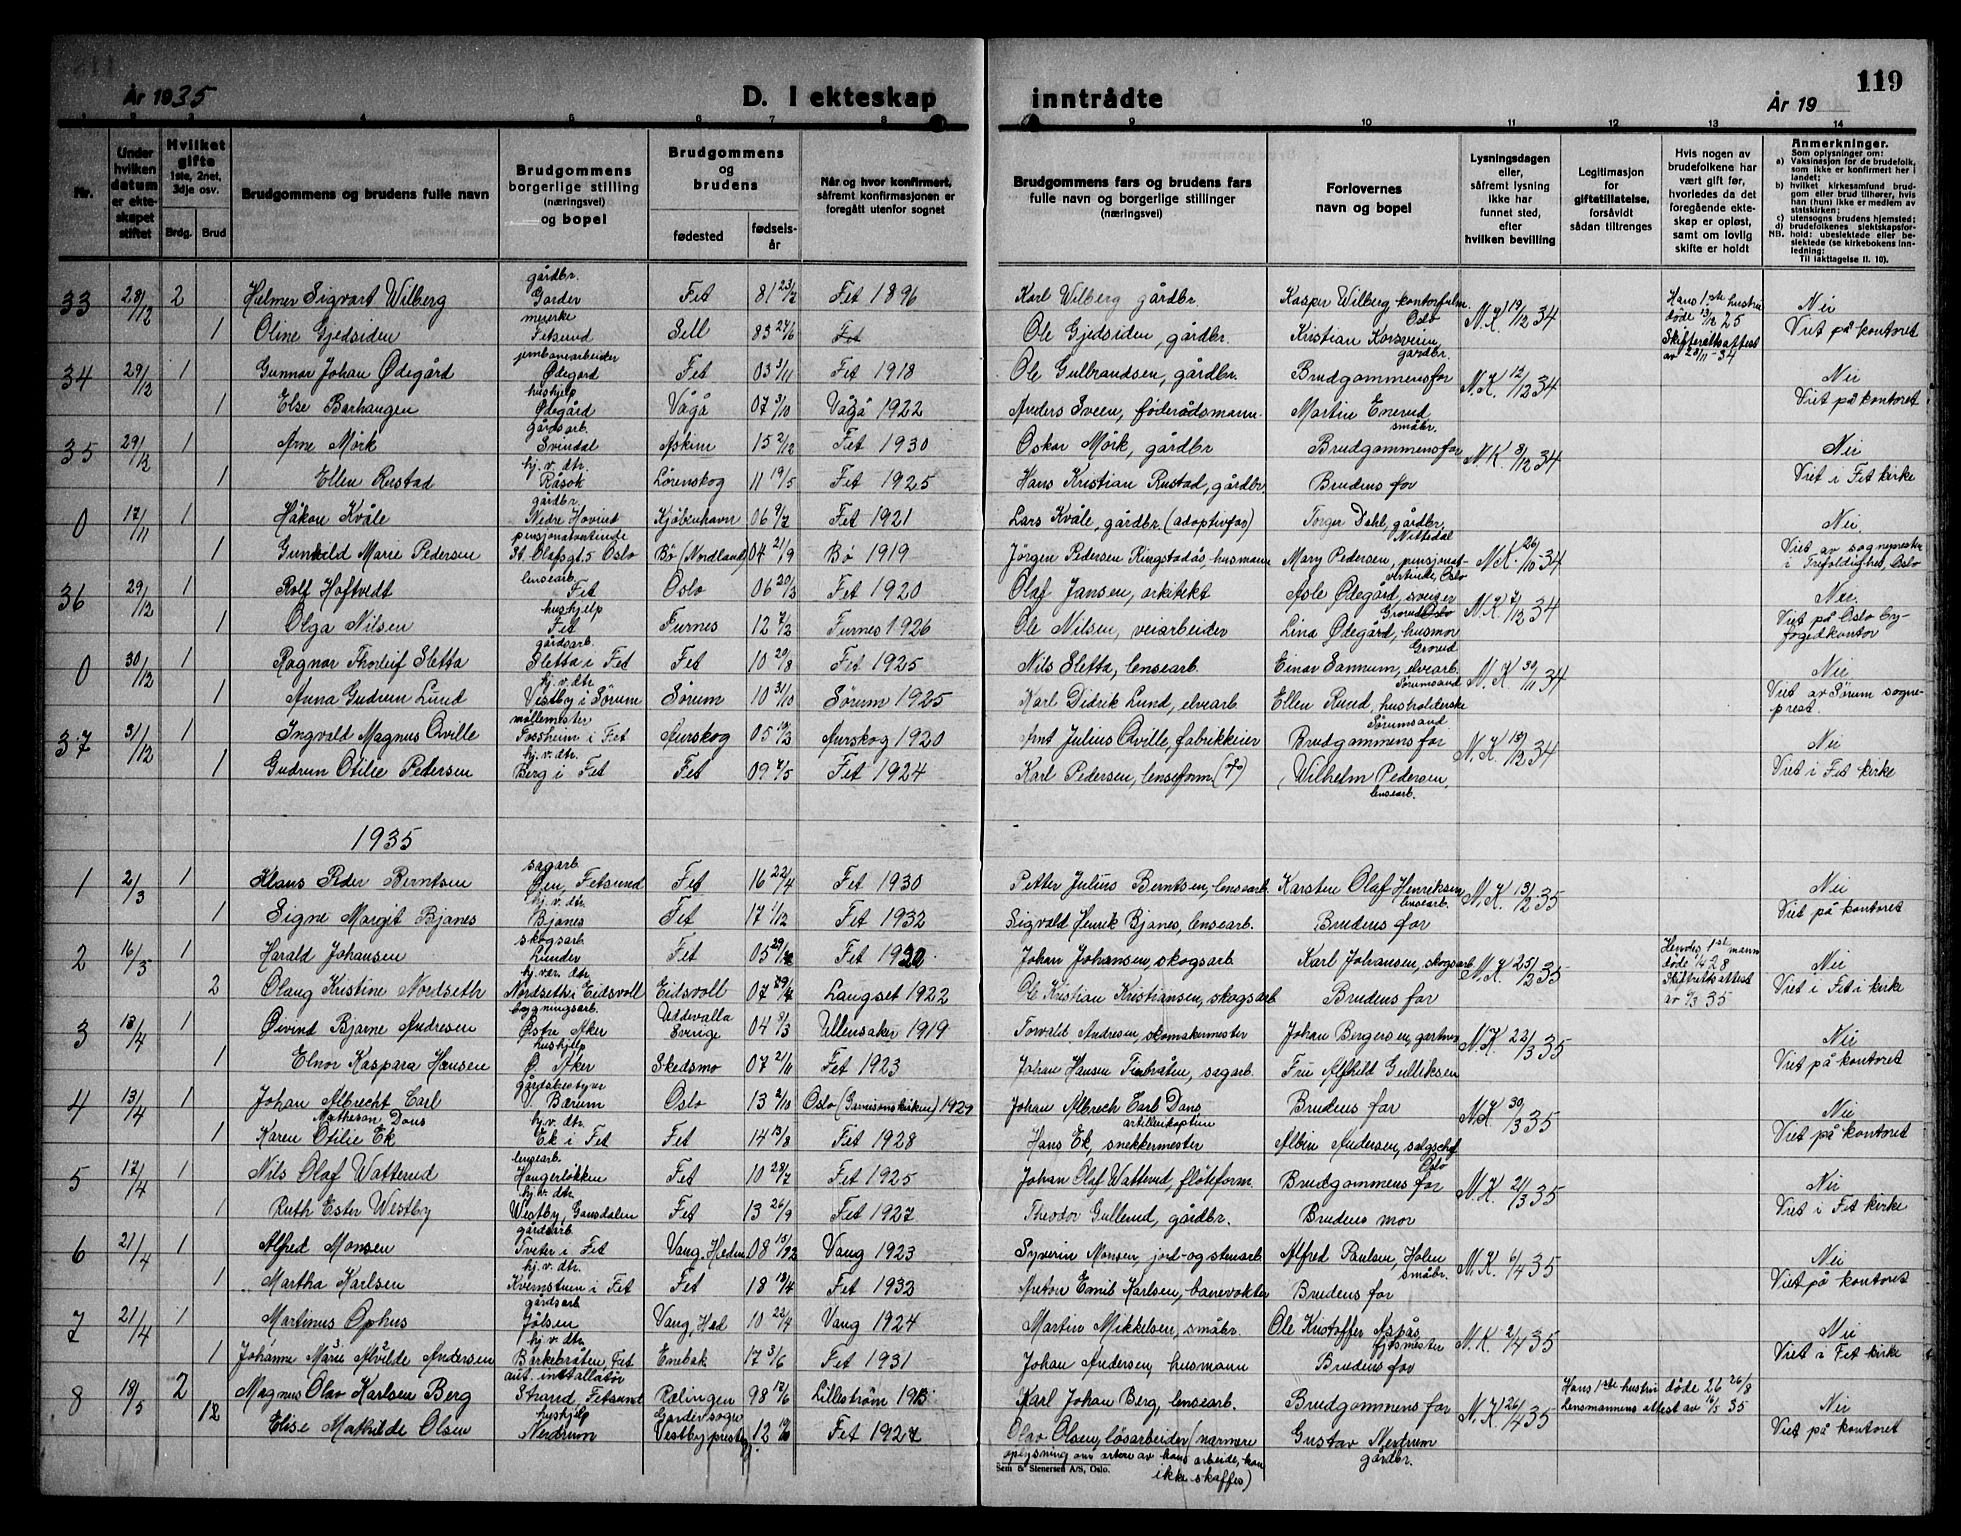 119
År 1935
D. I ekteskap
inntrådte
År 19
1 2 3 4 5 6 7 8 9 10 11 12 13 14
Nr.
Under hvilken datum er ekteskapet stiftet
Hvilket gifte 1ste, 2net, 3dje osv.
Brdg. Brud
Brudgommens og brudens fulle navn
Brudgommens borgerlige stilling (næringsvei) og bopel
Brudgommens og brudens
fødested fødselsår
Når og hvor konfirmert, såfremt konfirmasjonen er foregått utenfor sognet
Brudgommens fars og brudens fars fulle navn og borgerlige stillinger (næringsvei)
Forlovernes navn og bopel
Lysningsdagen eller, såfremt lysning ikke har funnet sted, efter hvilken bevilling
Legitimasjon for giftetillatelse, forsåvidt sådan tiltrenges
Hvis nogen av brudefolkene har vært gift før, hvorledes da det foregående ekteskap er opløst, samt om lovlig skifte er holdt
Anmerkninger.
Som oplysninger om:
a) Vaksinasjon for de brudefolk, som ikke er konfirmert her i landet;
b) hvilket kirkesamfund brudgom eller brud tilhører, hvis han (hun) ikke er medlem av statskirken;
c) utensogns brudens hjemsted;
d) brudefolkenes slektskapsforhold: ubeslektede eller beslektede (se kirkebokens innledning:
NB. Til iakttagelse II. 10).
33 28/12 2 Helmer Sigvart Wilberg gårdbr. Garder Fet 81 23/2 Fet 1896 Karl Wilberg gårdbr. Kasper Wilberg, kontorfulm. Oslo N.K. 19/12 34 Hans 1ste hustru døde 13/12 25 Skifterettsattest av 28/11-34 Nei
1 Oline Gjedsiden meierske Fetsund Sell 83 24/6 Fet Ole Gjedsiden, gårdbr. Kristian Korsveien gårdbr. Viet på kontoret
34 29/12 1 Gunnar Johan Ødegård jernbanearbeider Ødegård Fet 03 3/11 Fet 1918 Ole Gulbrandsen, gårdbr. Brudgommens far N.K. 12/12 34 Nei
1 Else Barhaugen hushjelp Ødegård Vågå 07 3/10 Vågå 1922 Anders Sveen, føderådsmann. Martin Enerud småbr. Viet på kontoret
35 29/12 1 Arne Mörk gårdsarb. Svindal Askim 15 2/12 Fet 1930 Oskar Mörk, gårdbr. Brudgommens far N.K. 8/12 34 Nei
1 Ellen Rustad hj. v. dtr. Råsok Lörenskog 11 19/5 Fet 1925 Hans Kristian Rustad, gårdbr. Brudens far Viet i Fet kirke
0 17/11 1 Håkon Kvåle gårdbr. Nedre Hovind Kjøbenhavn 06 9/7 Fet 1921 Lars Kvåle, gårdbr. (adoptivfar) Torger Dahl, gårdbr. Nittedal N.K. 26/10 34 Nei
1 Gunhild Marie Pedersen pensjonatvertinde St. Olafsgt. 5 Oslo Bø (Nordland) 04 21/9 Bø 1919 Jörgen Pedersen Ringstadås, husmann Mary Pedersen, pensjonatvertinde, Oslo Viet av sogneprest i Trefoldighet, Oslo
36 29/12 1 Rolf Hoftvedt lensearb. Fet Oslo 06 20/3 Fet 1920 Olaf Jansen, arkitekt Asle Ødegård, sveiser Grorud N.K. 7/12 34 Nei.
1 Olga Nilsen hushjelp Fet Furnes 12 7/2 Furnes 1926 Ole Nilsen, veiarbeider Lina Ødegård, husmor Grorud Viet på Oslo byfogedkontor
0 30/12 1 Ragnar Thorleif Sletta gårdsarb. Sletta i Fet Fet 10 20/8 Fet 1925 Nils Sletta, lensearb. Einar Sannum, elvearb. Sørumsand N.K. 30/11 34 Nei
1 Anna Gudrun Lund hj. v. dtr. Vestby i Sørum Sørum 10 31/10 Sørum 1925 Karl Didrik Lund, elvearb. Ellen Rund, husholderske Sørumsand Viet av Sørum sogneprest.
37 31/12 1 Ingvald Magnus Qville möllemester Fossheim i Fet Aurskog 05 10/3 Aurskog 1920 Arnt Julius Qville, fabrikkeier Brudgommens far N.K. 13/12 34 Nei
1 Gudrun Otilie Pedersen hj. v. dtr. Berg i Fet Fet 09 7/5 Fet 1924 Karl Pedersen, lenseform. Wilhelm Pedersen, lensearb. Viet i Fet kirke
1935
1 2/3 1 Klaus Peder Berntsen sagarb. Øen, Fetsund Fet 16 22/4 Fet 1930 Petter Julius Berntsen, lensearb. Karsten Olaf Henriksen lensearb. N.K. 13/2 35 Nei
1 Signe Margit Bjanes hj. v. dtr. Bjanes Fet 17 1/12 Fet 1932 Sigvald Henrik Bjanes, lensearb. Brudens far Viet på kontoret
2 16/3 1 Harald Johansen skogsarb. Lunder Fet 05 Fet 1920 Johan Johansen, skogsarb. Karl Johansen, skogsarb N.K. 25/2 35 Hendes 1st mann døde 1/4 28 Skifterettsattest av 9/3 35 Nei
2 Olaug Kristine Nordseth hj. vær. dtr. Nordseth i Eidsvoll Eidsvoll 07 29/4 Langset 1922 Ole Kristian Kristiansen, skogsarb Brudens far Viet i Fet i kirke
3 13/4 1 Øivind Bjarne Andresen bygningsarb. Østre Aker Uddevalla Sverige 04 8/3 Ullensaker 1919 Torvald Andresen, skomakermester Johan Bergersen, gartner N.K. 22/3 35 Nei
1 Elnor Kaspara Hansen hushjelp Ø. Aker Skedsmo 07 2/11 Fet 1923 Johan Hansen Tienbråten, sagarb. Fru Alfhild Gulliksen Viet på kontoret
4 13/4 1 Johan Albrecht Carl Matheson Dons gårdsbestyrer V. Bærum Oslo 13 2/10 Oslo (Garnisonskirken) 1929 Johan Albrech Carl Dons, artillerikaptein Brudens far N.K. 30/3 35 Nei
1 Karen Otilie Ek hj. v. dtr. Ek i Fet Fet 14 13/8 Fet 1928 Hans Ek, snekkermester Albin Andersen, salgschef Oslo Viet på kontoret
5 17/4 1 Nils OlafВатterud lensearb. Haugerløkken Fet 10 28/7 Fet 1925 Johan Olaf Watterud, fløteform. Brudgommens far N.K. 21/3 35 Nei
1 Ruth Ester Westby hj. v. dtr. Westby, Gansdalen Fet 13 26/9 Fet 1927 Theodor Gullerud, gårdbr. Brudens mor Viet i Fet kirke
6 21/4 1 Alfred Monsen gårdsarb. Tveter i Fet Vang, Hedm 08 15/12 Vang 1923 Syverin Monsen, jord- og stenarb. Alfred Paulsen, Holen småbr. N.K. 6/4 35 Nei
1 Martha Karlsen hj. v. dtr. Kvernstuen i Fet Fet 18 13/4 Fet 1932 Anton Emil Karlsen, banevokter Brudens far Viet på kontoret
7 21/4 1 Martinus Ophus gårdsarb Jölsen Vang, Hed 10 22/4 Vang 1924 Martin Mikkelsen, småbr. Ole Kristoffer Aspås fjøsmester N.K. 2/4 35 Nei
1 Johanne Marie Alvilde Andersen hj. v. dtr. Börkebråten, Fet Enebak 17 3/6 Fet 1931 Johan Andersen, husmann Brudens far Viet i Fet kirke
8 18/5 2 Magnus Olav Karlsen Berg aut. installatør Strand Fetsund Rælingen 98 12/6 Lilleström 1913 Karl Johan Berg, lensearb. Brudgommens far N.K. 26/4 35 Hans 1ste hustru døde 26 26/8 Lensmannens attest av 14/5 35 Nei
Else Mathilde Olsen hushjelp Nerdrum Garder sogn Vestby prestegj. 12 19/10 Fet 1927 Olav Olsen, løsarbeider (nærmere oplysning om arten av hans arbeide, kan ikke skaffes) Gustav Nerdrum gårdbr. Viet på kontoret
Sem & Stenersen A/S, Oslo.